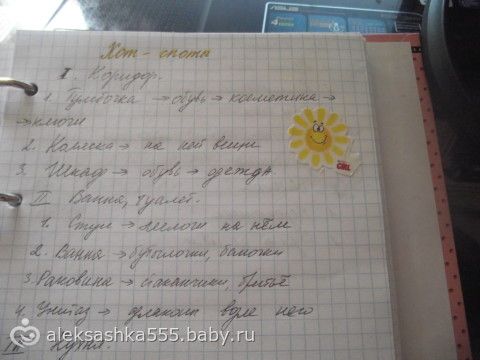 ASUS
Хот-споты
I. Коридор.
1. Тумбочка → обувь → косметика →
→ ключи
2. Коляска → на ней вещи
3. Шкаф → обувь → одежда.
II Ванна, туалет.
1. Стул → мелочи на нём
2. Ванна → бутылочки, баночки
3. Раковина → стаканчики, бритьё
4. Унитаз → флаконы возле него
III Кухня.
aleksashka555.baby.ru